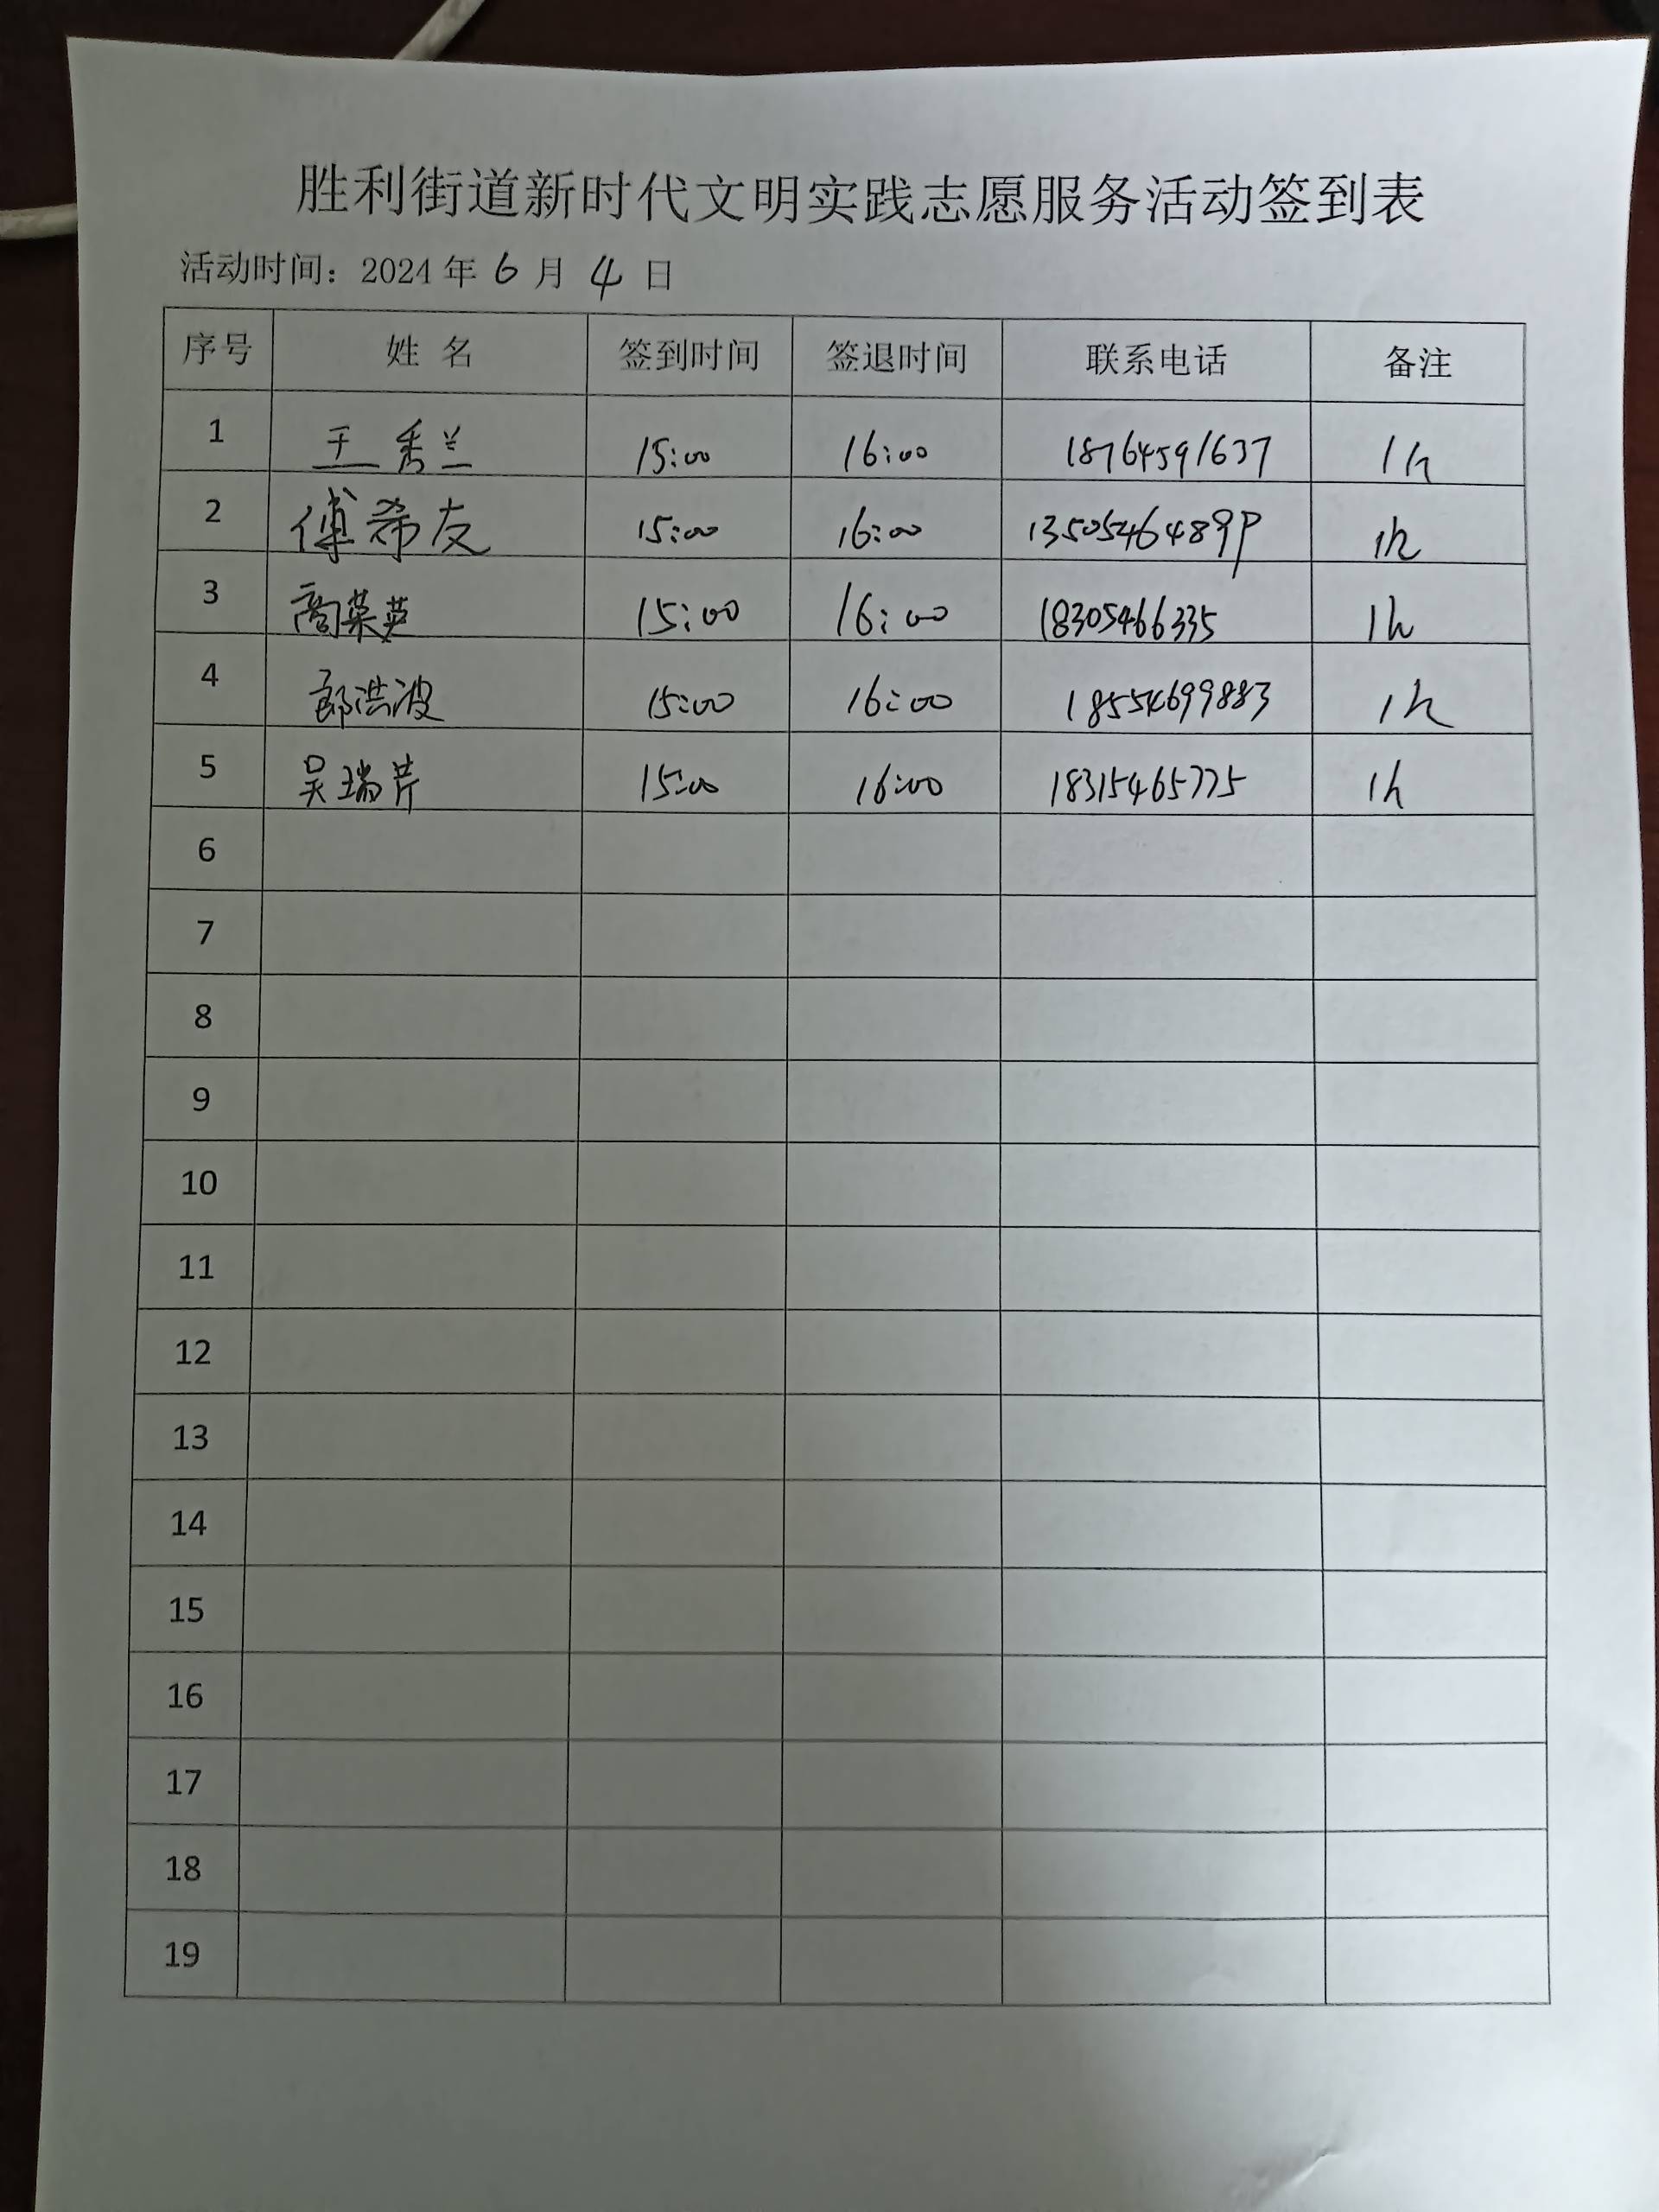 胜利街道新时代文明实践志愿服务活动签到表
活动时间：2024年6月4日
序号 姓名 签到时间 签退时间 联系电话 备注
1 王秀兰 15:00 16:00 18764591637 1h
2 傅希友 15:00 16:00 13505464899 1h
3 商菜英 15:00 16:00 18305466335 1h
4 郎洪波 15:00 16:00 18554699883 1h
5 吴瑞芹 15:00 16:00 18315465775 1h
6
7
8
9
10
11
12
13
14
15
16
17
18
19